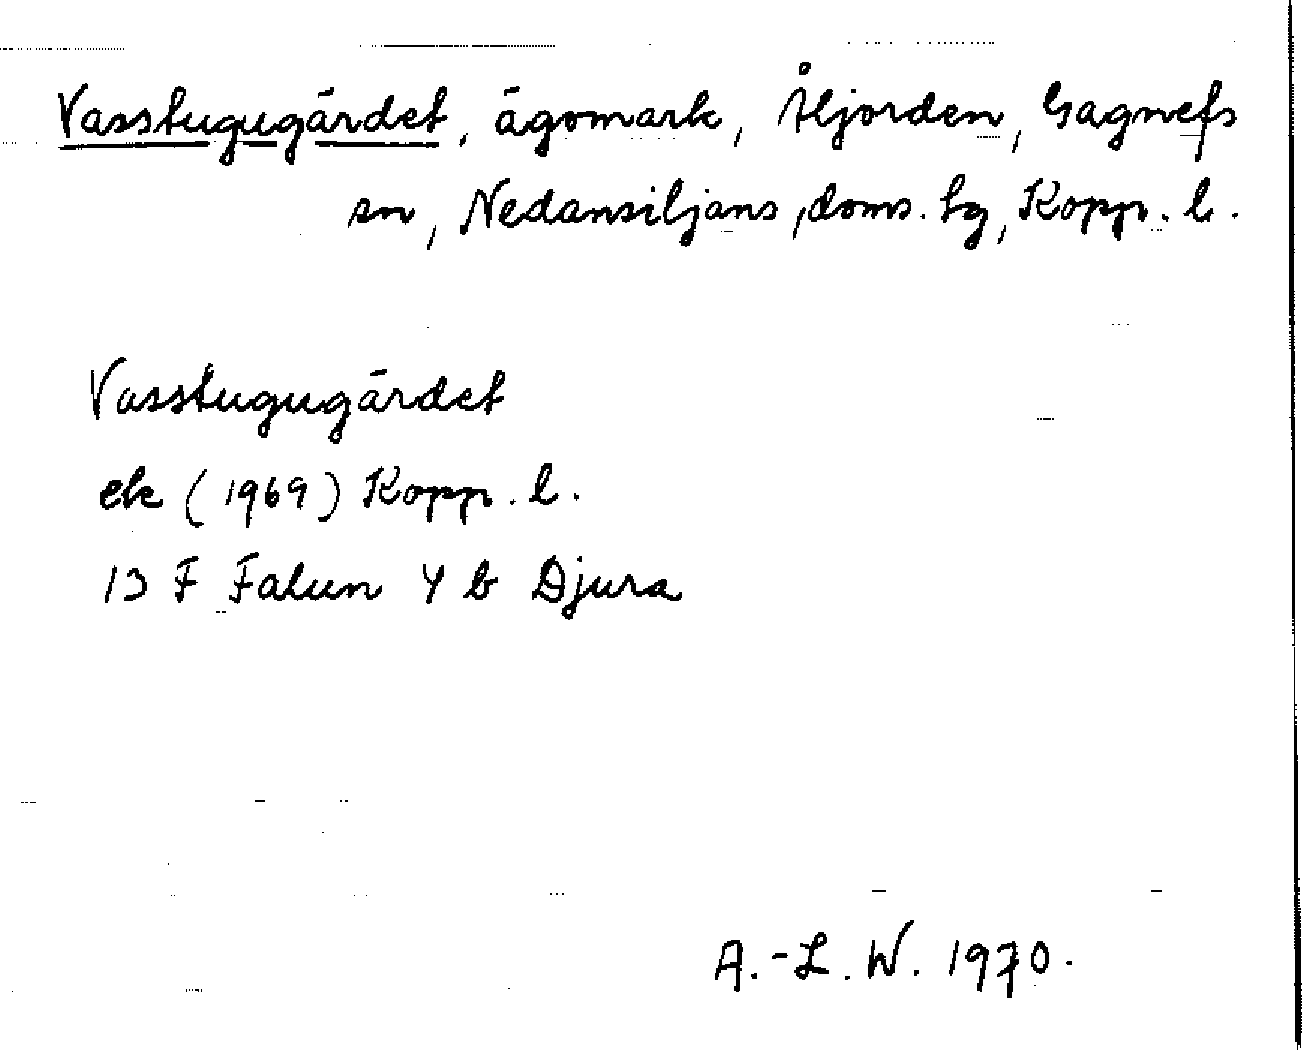 Vasstugugärdet, ägomark, Åljorden, Gagnefs
sn, Nedansiljans, doms. hg, Kopp. l.
Vasstugugärdet
ek (1969) Kopp. l.
13 F Falun 4 b Djura
A.-L. W. 1970.